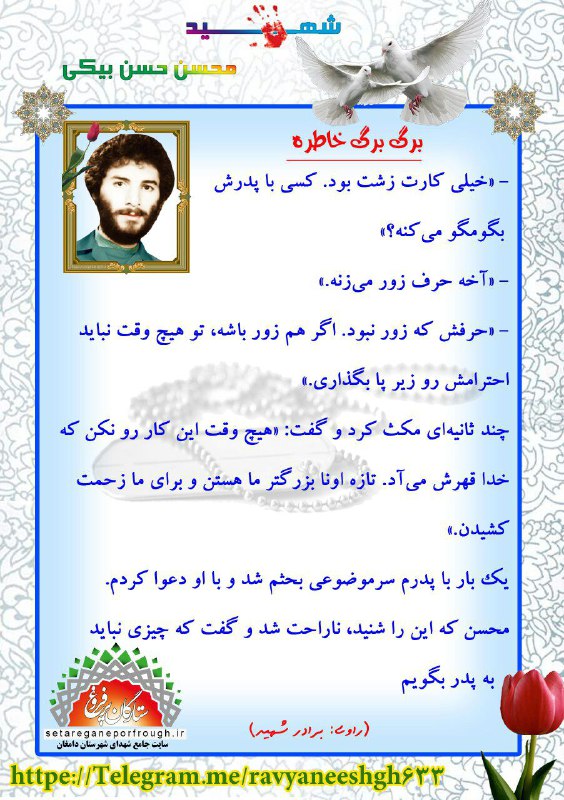 شهید
محسن حسن بیکی
برگی برگی خاطره
- «خیلی کارت زشت بود. کسی با پدرش
بگومگو می‌کنه؟»
- «آخه حرف زور می‌زنه.»
- «حرفش که زور نبود. اگر هم زور باشه، تو هیچ وقت نباید
احترامش رو زیر پا بگذاری.»
چند ثانیه‌ای مکث کرد و گفت: «هیچ وقت این کار رو نکن که
خدا قهرش می‌آد. تازه اونا بزرگتر ما هستن و برای ما زحمت
کشیدن.»
یک بار با پدرم سرموضوعی بحثم شد و با او دعوا کردم.
محسن که این را شنید، ناراحت شد و گفت که چیزی نباید
به پدر بگویم
(راوی: برادر شهید)
ستارگان پرفروغ
setareganeporfrough.ir
سایت جامع شهدای شهرستان دامغان
https://Telegram.me/ravyaneeshgh۶۳۳